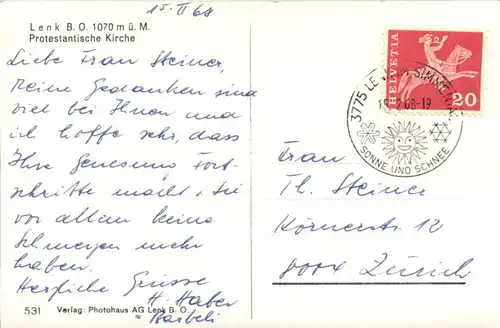 15. II 68
Lenk B.O. 1070 m ü. M.
Protestantische Kirche
Liebe Frau Steiner,
Meine Gedanken sind
viel bei Ihnen und
ich hoffe sehr, dass
Ihre Genesung Fort-
schritte macht, Sie
vor allem keine
Schmerzen mehr
haben.
Herzliche Grüsse
H. Haber
Bärbeli
531 Verlag: Photohaus AG Lenk B.O.
HELVETIA
20
3775 LENK IM SIMMENTAL
15.2.68-19
SONNE UND SCHNEE
Frau
Th. Steiner
Körnerstr. 12
8004 Zürich